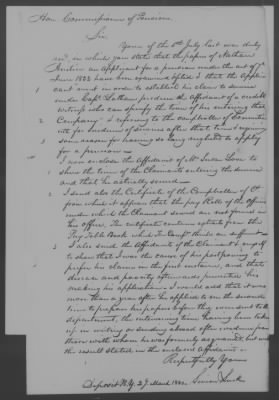 Hon. Commissioner of Pensions
Sir
Yours of the 5th July last was duly
recd. in which you state that the papers of Nathan
an Applicant for a pension under the act of 7th
June 1832 have been examined & that the Appli-
cant must in order to establish his claim to service
under Capt. Latham produce the Affidavit of a credible
witness who can specify the time of his entering that
2 Company & referring to the comptroller of Connecticut
for evidence of service after that time & requiring
3 some reason for having so long neglected to apply
for a pension
1 I now enclose the Affidavit of Mr
show the time of the Claimants entering the service
and that he actually served
2 I send also the Certificate of the Comptroller of Ct
from which it appears that the pay Rolls of the Officers
under which the Claimant served are not found in
his office. The certificate contains extracts from the
Pay Table Book which the Compt thinks are sufficient
3 I also send the Affidavits of the Claimant & myself
to show that was the cause of his postponing to
prefer his claims in the first instance, and that
disease and poverty afterwards prevented his
making his application. I would add that it was
more than a year after he applied to me the second
time to prepare his papers before they were sent to the
department, the intervening time having been taken
up in writing or sending abroad after evidence from
those with whom he was formerly acquainted, but with
the result stated in the enclosed affidavits
Respectfully Yours
Deposit N.Y. 27 March